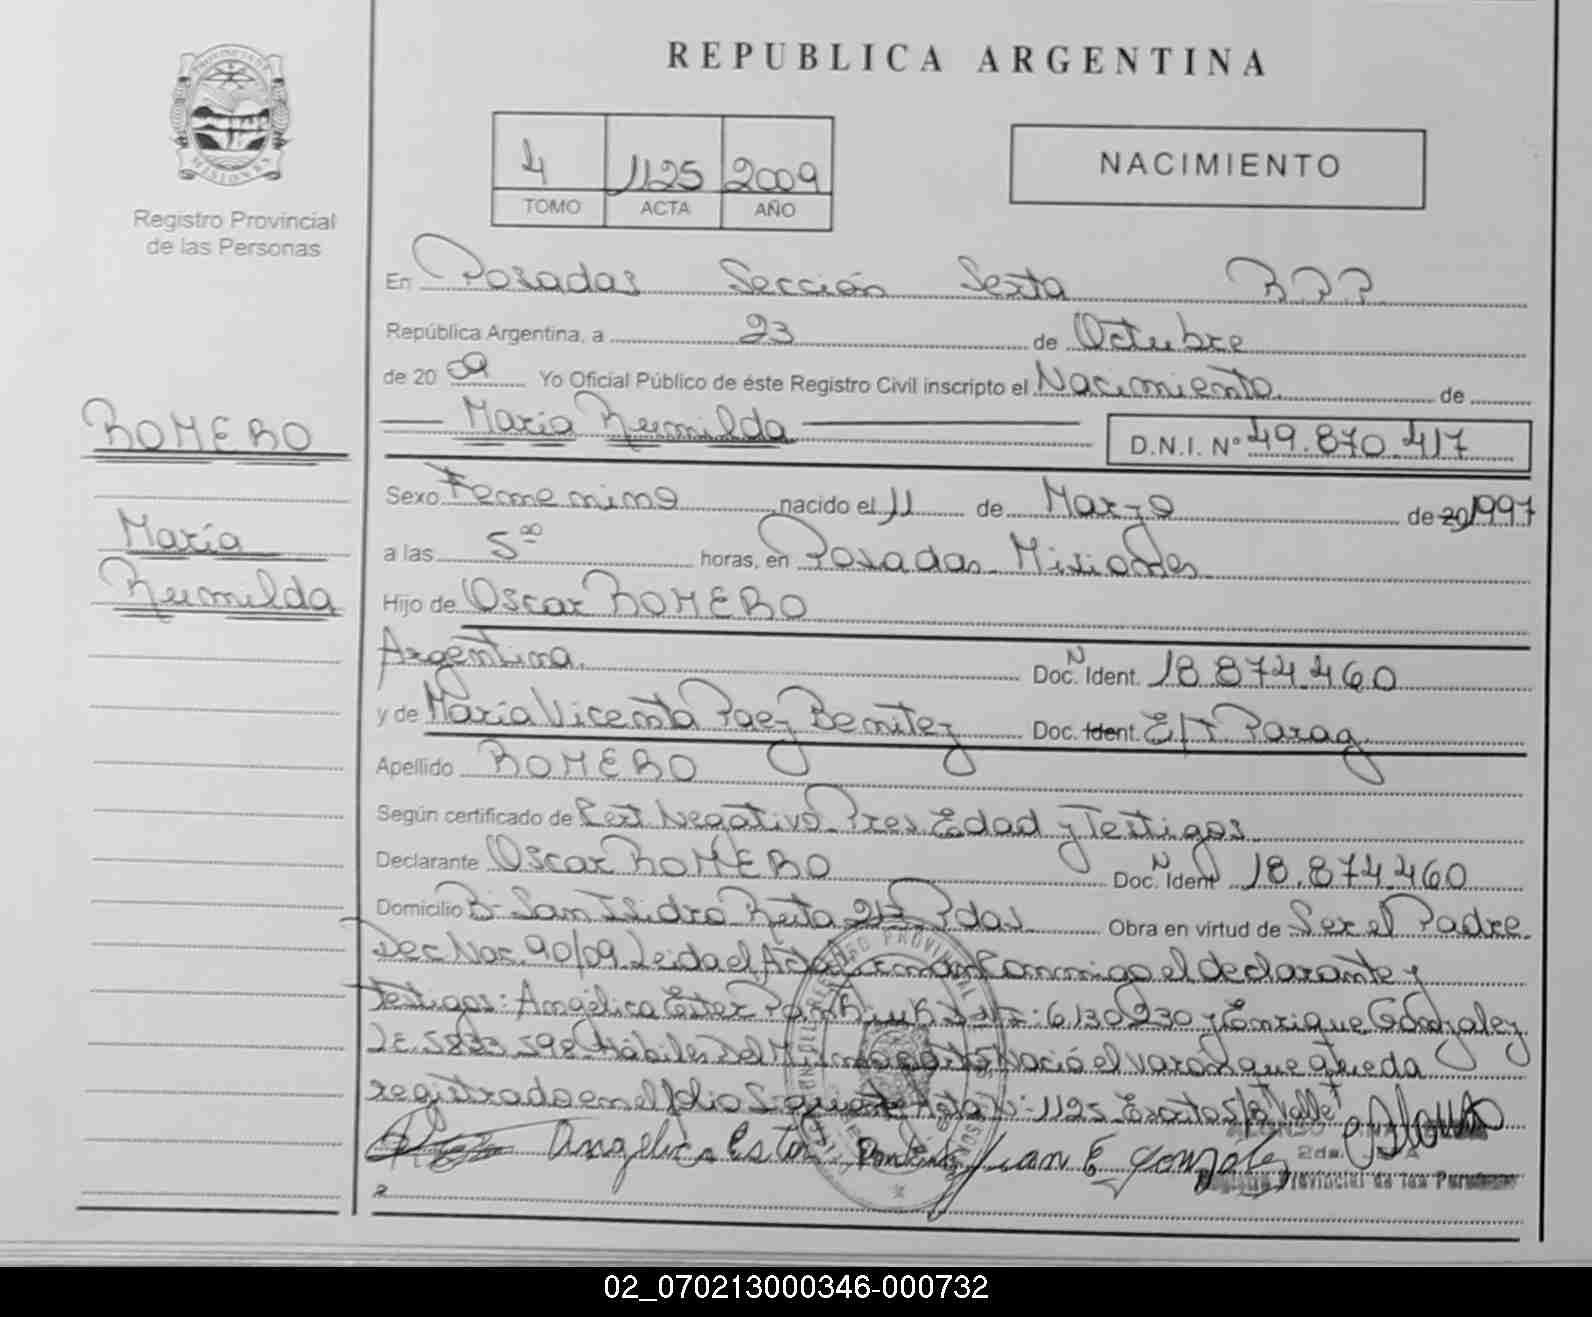 REPUBLICA ARGENTINA
Registro Provincial
de las Personas
4 1125 2009
TOMO ACTA AÑO
NACIMIENTO
ROMERO
María
Reimilda
En Posadas Sección Sexta
República Argentina, a 23 de Octubre
de 20 09 Yo Oficial Público de éste Registro Civil inscripto el Nacimiento de
María Reimilda D.N.I. Nº 49.870.417
Sexo Femenino nacido el 11 de Marzo de 20 1997
a las 5 00 horas, en Posadas Misiones
Hijo de Oscar ROMERO
Argentina Doc. N Ident. 18.874.460
y de María Vicenta Paez Benitez Doc. Ident. E/T Parag
Apellido ROMERO
Según certificado de Cert Negativo Pres Edad y Testigos
Declarante Oscar ROMERO Doc. N Ident 18.874.460
Domicilio Bº San Isidro Ruta 213 Pdas Obra en virtud de Ser el Padre
Dec Nac. 90/09 Leída el Acta Firman Conmigo el declarante y
Testigos: Angélica Ester 6130230 y Enrique Gonzalez
LE. 5833598 Hábiles Del Nació el varon que queda
registrado en el folio Acta Nº: 1125
Angélica Ester Juan E Gonzalez
Provincial de las Personas
02_070213000346-000732